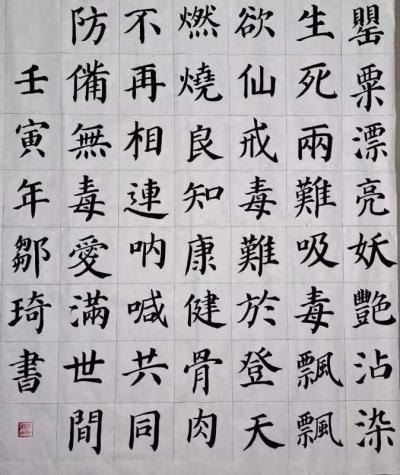 罌粟漂亮妖艷沾染
生死兩難吸毒飄飄
欲仙戒毒難於登天
燃燒良知康健骨肉
不再相連吶喊共同
防備無毒愛滿世間
壬寅年鄒琦書